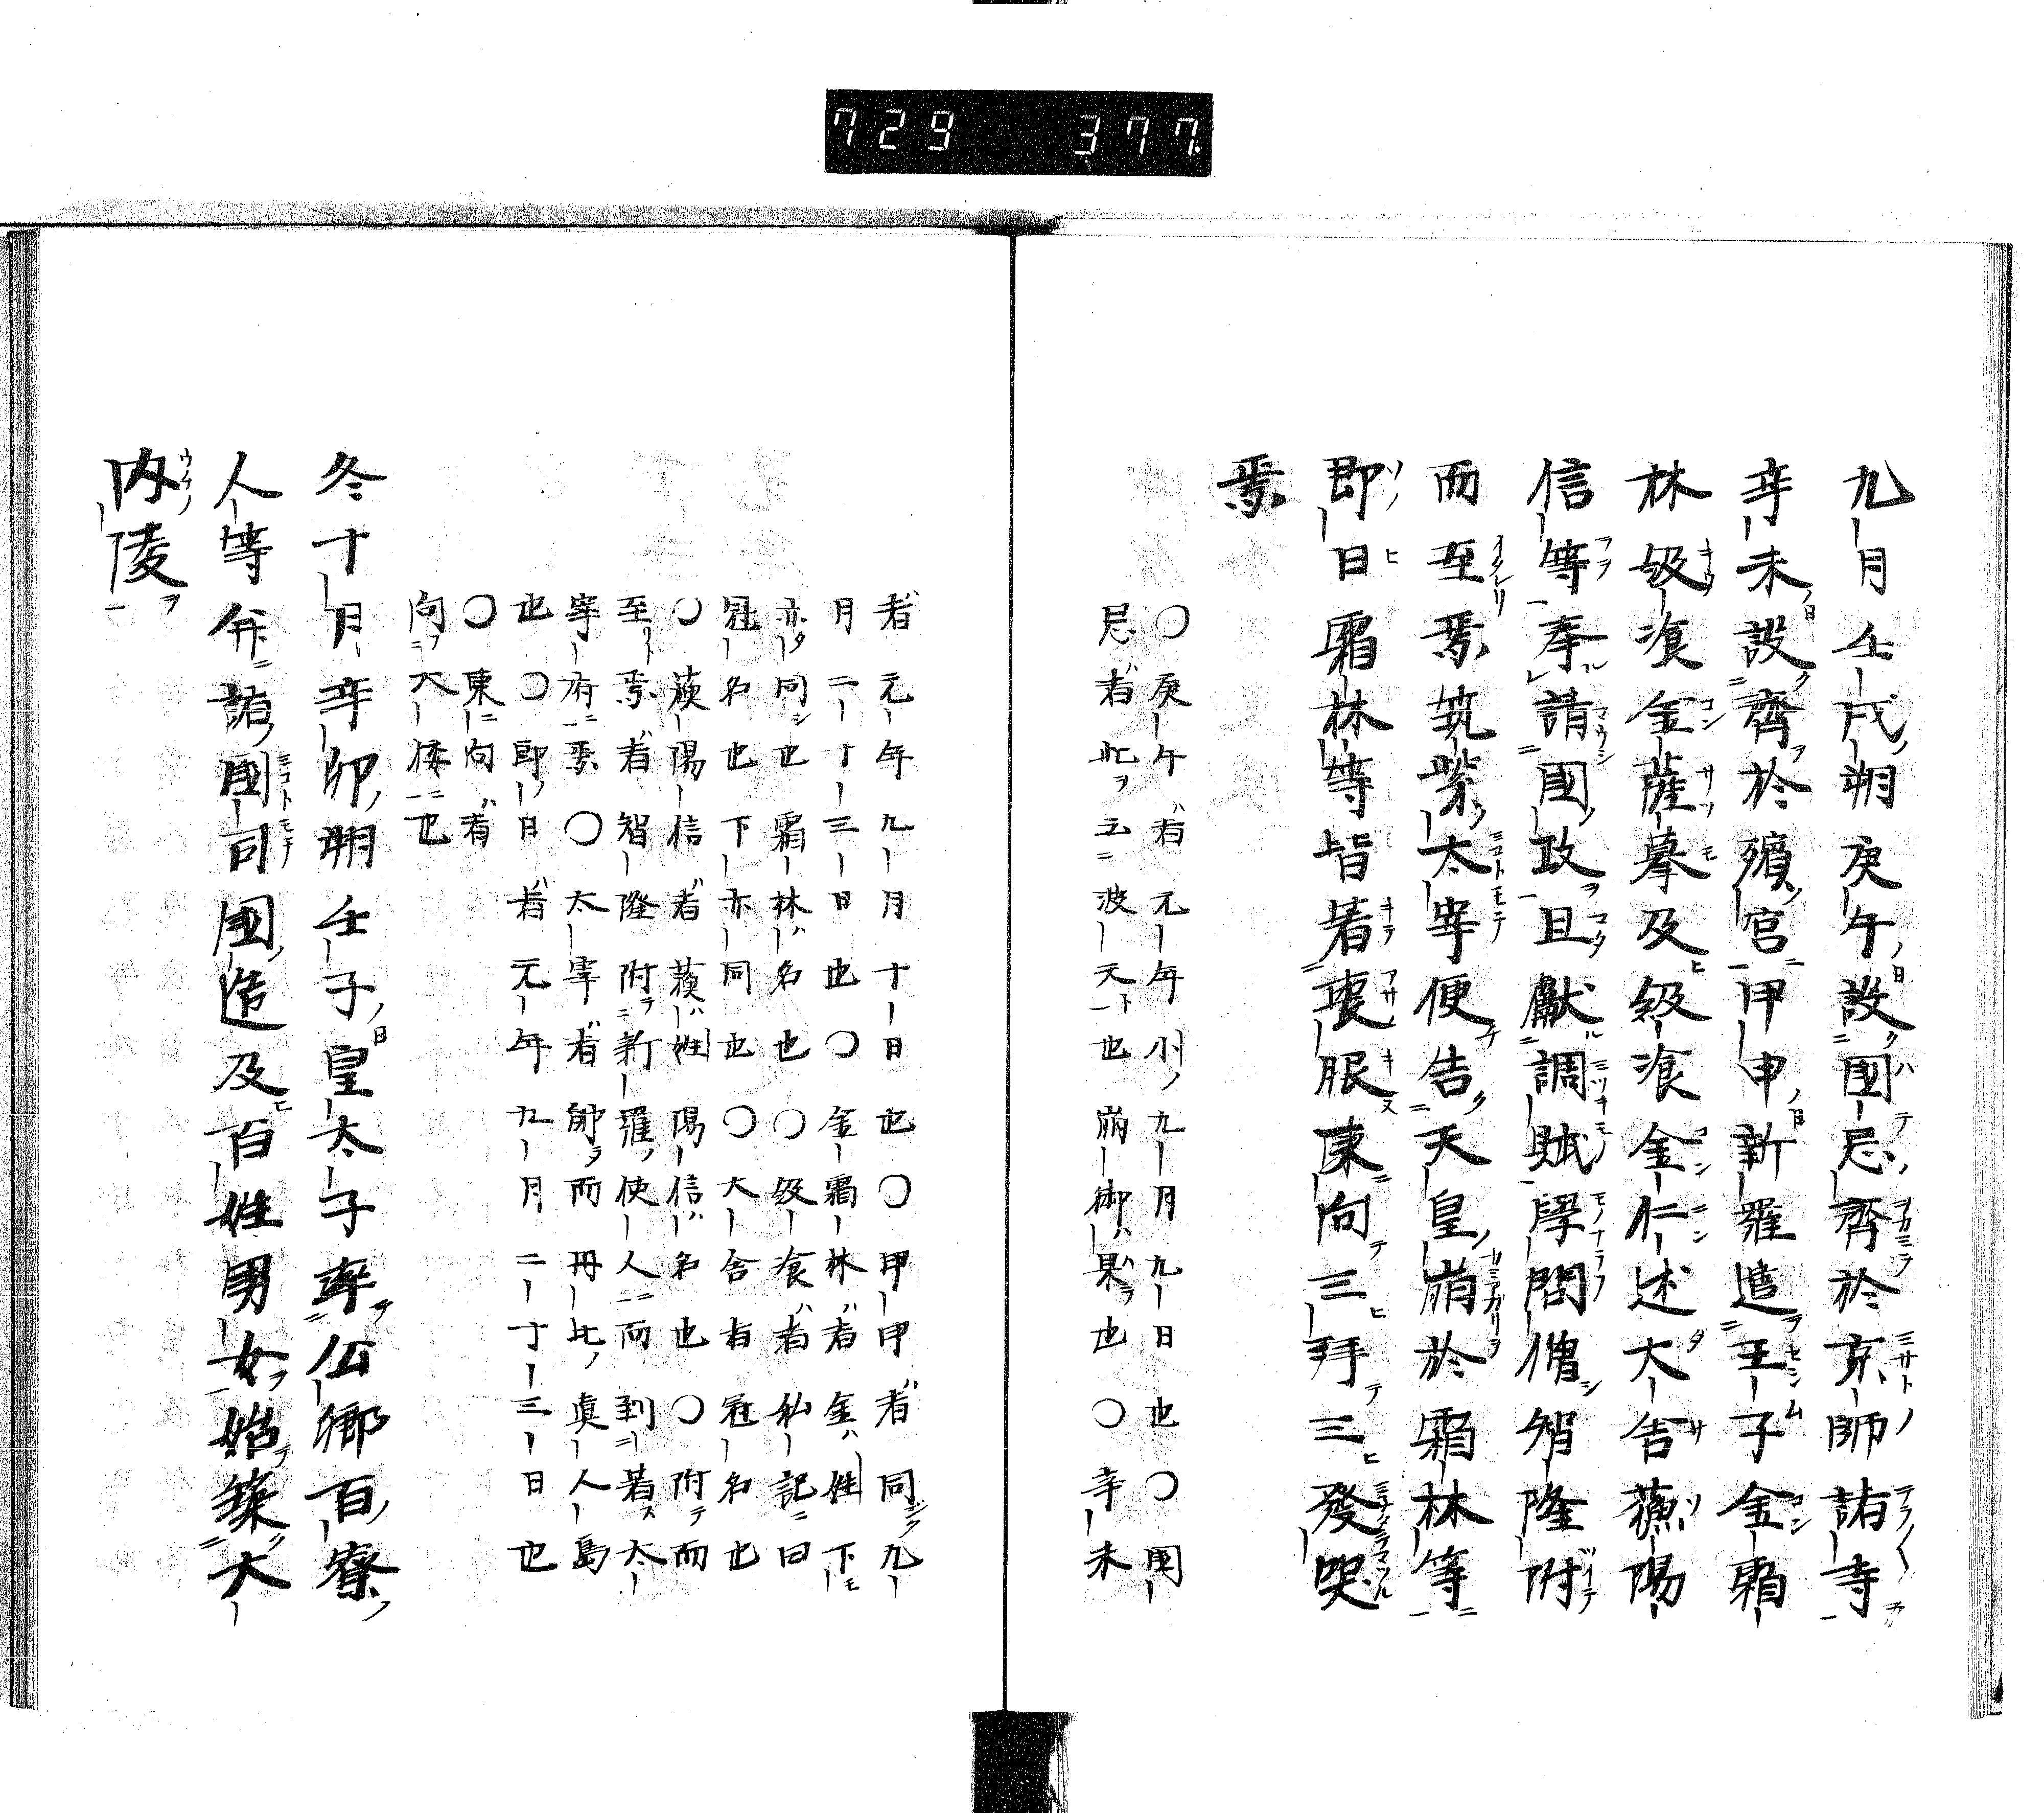 729 377
九月壬戌朔庚午設國忌齊於京師諸寺
辛未設齊於殯宮甲申新羅遣王子金霜
林級飡金薩摹及級飡金仁述大舍蘓陽
信等奉請國政且獻調賦學問僧智隆附
而至焉筑紫太宰便告天皇崩於霜林等
即日霜林等皆著喪服東向三拜三發哭
焉
〇庚午者元年小ノ九月九日也〇国
忌者此ヲ云ニ波天ト也崩御ハ果ヲ也〇辛未
者元年九月十日也〇甲申者同シク九
月二十三日也〇金霜林者金ハ姓下モ
亦タ同シ也霜林ハ名也〇級飡者私記ニ曰
冠名也下亦同也〇大舎者冠名也
〇蘓陽信者蘓ハ姓陽信ハ名也〇附テ而
至リ焉者智隆附ラ新羅ノ使人ニ而到着ス太
宰府ニ焉〇太宰者帥ヲ而冊比ノ真人島
也〇即ノ日者元年九月二十三日也
〇東ニ向者
向フ大倭ニ也
冬十月辛卯朔壬子皇太子率公卿百寮
人等并諸國司國造及百姓男女始築大
内陵